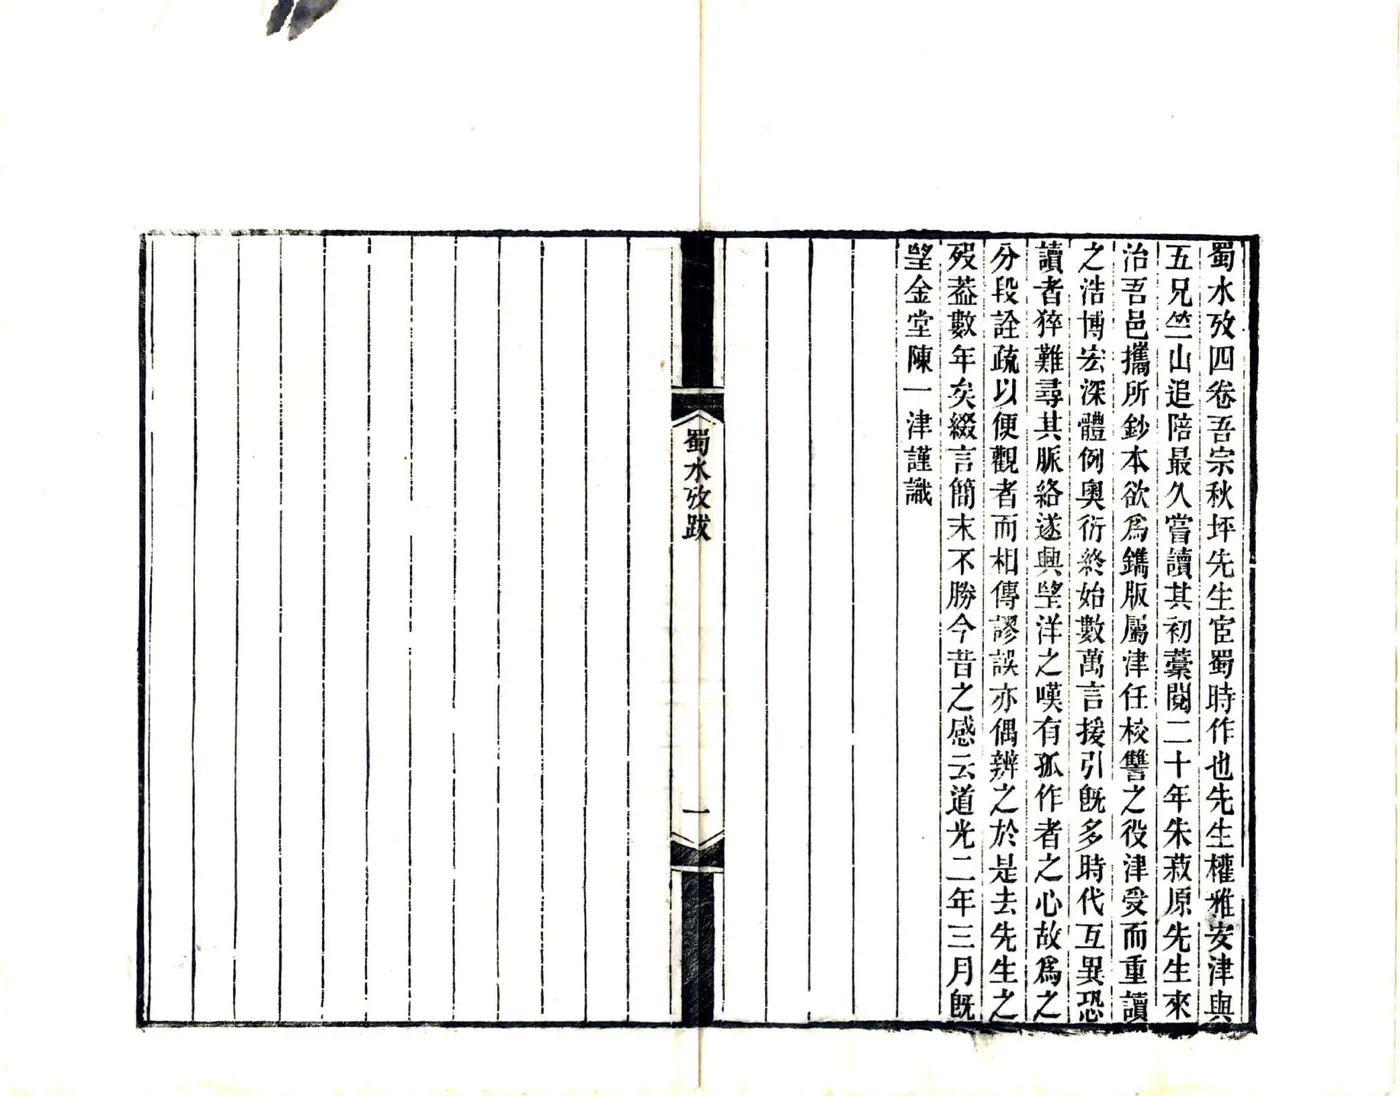 蜀水攷四卷吾宗秋坪先生宦蜀時作也先生權雅安津與
五兄竺山追陪最久嘗讀其初藁閱二十年朱菽原先生來
治吾邑攜所鈔本欲爲鐫版屬津任校讐之役津受而重讀
之浩博宏深體例奧衍終始數萬言援引旣多時代互異恐
讀者猝難尋其脈絡遂興朢洋之嘆有孤作者之心故爲之
分段詮疏以便觀者而相傳謬誤亦偶辨之於是去先生之
歿葢數年矣綴言簡末不勝今昔之感云道光二年三月旣
朢金堂陳一津謹識
蜀水攷跋
一